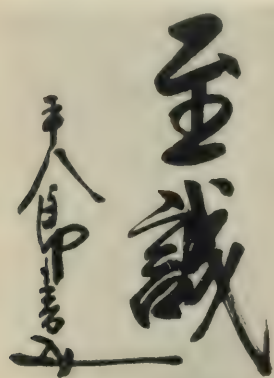 至誠
平八郎書